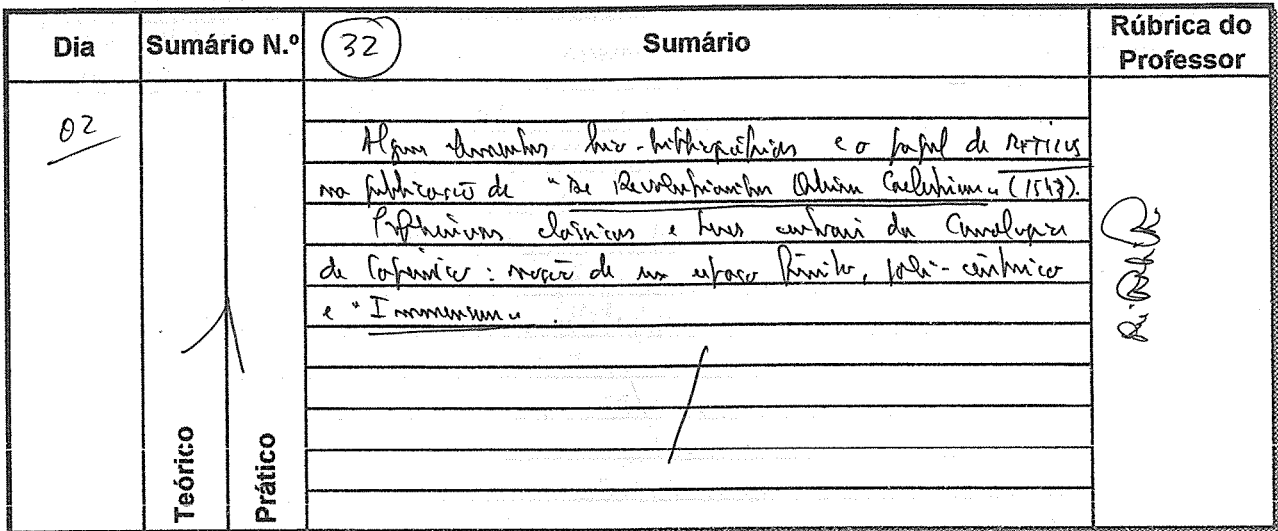 Dia Sumário N.º 32 Sumário Rúbrica do Professor
02
Alguns elementos bio-bibliográficos e o papel de RETICUS
na publicação de "De Revolutionibus Orbium Caelestium" (1543).
clássicos e teses centrais da Cosmologia
de Copérnico: noção de um espaço finito,
e "Immensum".
Teórico
Prático